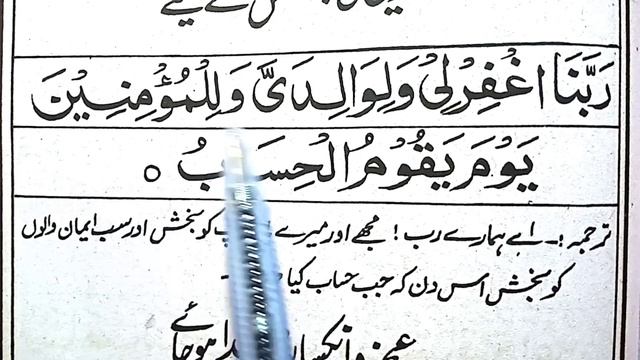 کے لیے
رَبَّنَا اغْفِرْلِیْ وَلِوَالِدَیَّ وَلِلْمُؤْمِنِیْنَ
یَوْمَ یَقُوْمُ الْحِسَابُ ○
ترجمہ :۔ اے ہمارے رب ! مجھے اور میرے کو بخش اور سب ایمان والوں
کو بخش اس دن کہ جب حساب کیا
ہو جائے